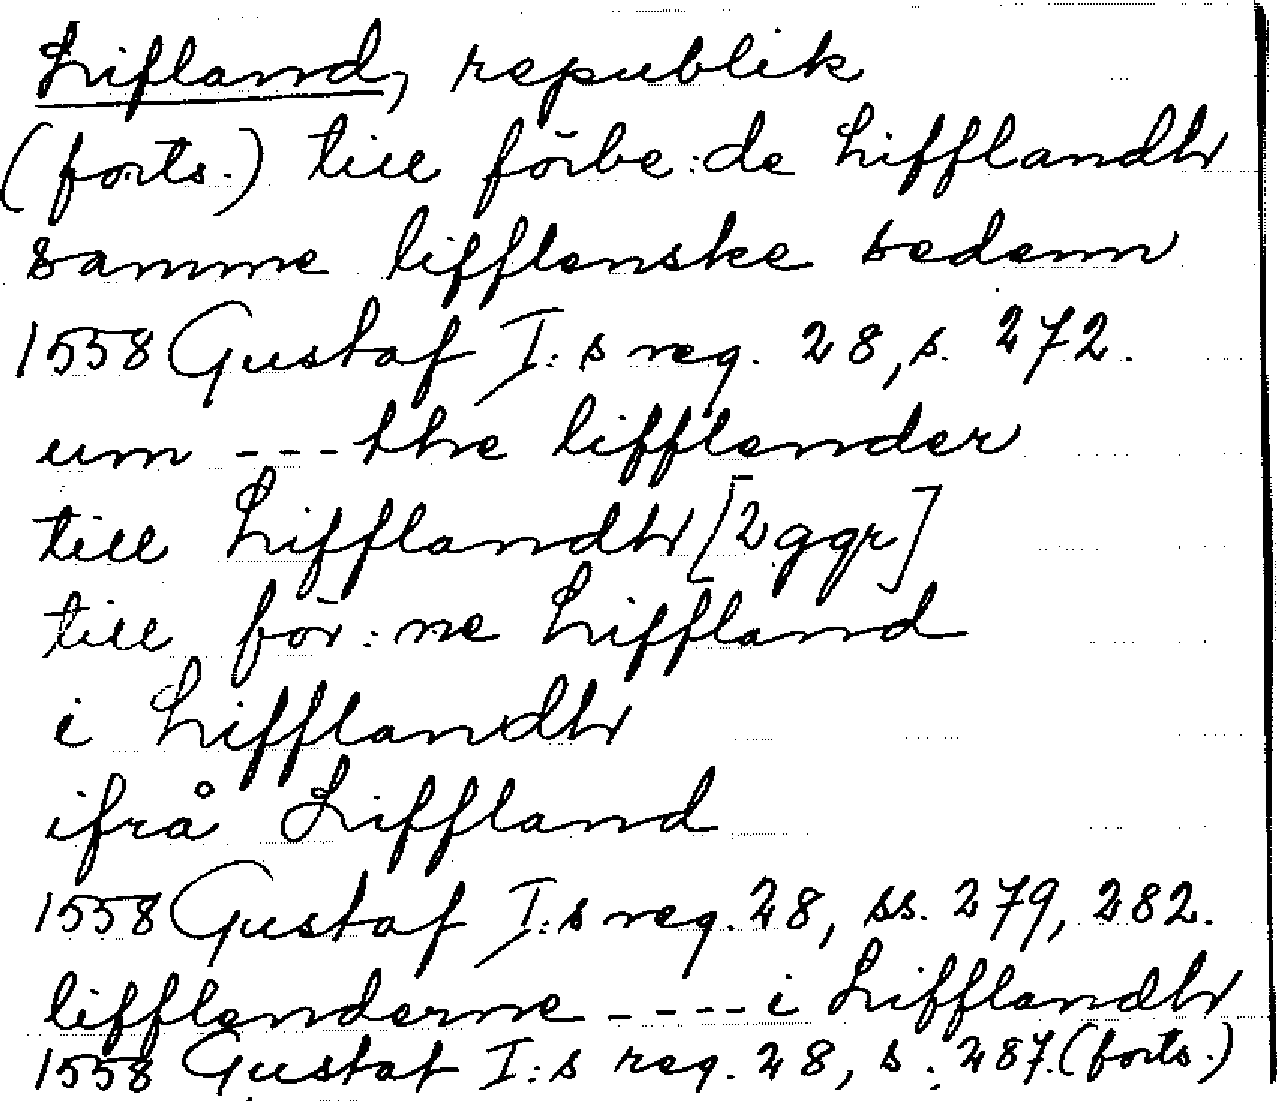 Lifland, republik
(forts.) till förbe:de Lifflandh
samme lifflenske sedenn
1558 Gustaf I:s reg. 28, s. 272.
um ---the lifflender
till Lifflandh [2 ggr]
till för:ne Liffland
i Lifflandh
ifrå Liffland
1558 Gustaf I:s reg. 28, ss. 279, 282.
lifflenderne ---- i Lifflandh
1558 Gustaf I:s reg. 28, s. 287. (forts.)